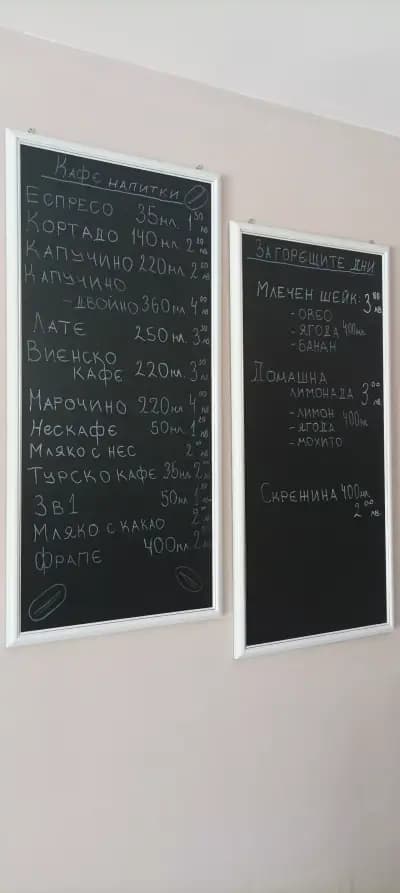 Кафе напитки
Еспресо 35мл. 1 50 лв
Кортадо 140мл. 2 50 лв
Капучино 220мл. 2 50 лв
Капучино
- двойно 360мл. 4 00 лв
Лате 250мл. 3 50 лв
Виенско
кафе 220мл. 3 50 лв
Марочино 220мл 4 00 лв
Нескафе 50мл 1 лв
Мляко с нес 2 лв
Турско кафе 35мл 2
3в1 50мл 1 лв
Мляко с какао 2
Фрапе 400мл 2
За горещите дни
Млечен шейк: 3 00 лв
- орео
- ягода 400мл
- банан
Домашна
лимонада 3 00 лв
- лимон
- ягода 400мл
- мохито
Скрежина 400мл
2 00 лв.